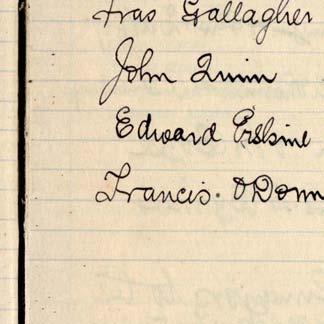 Fras Gallagher
John Quinn
Edward Erskine
Francis. O'Donn